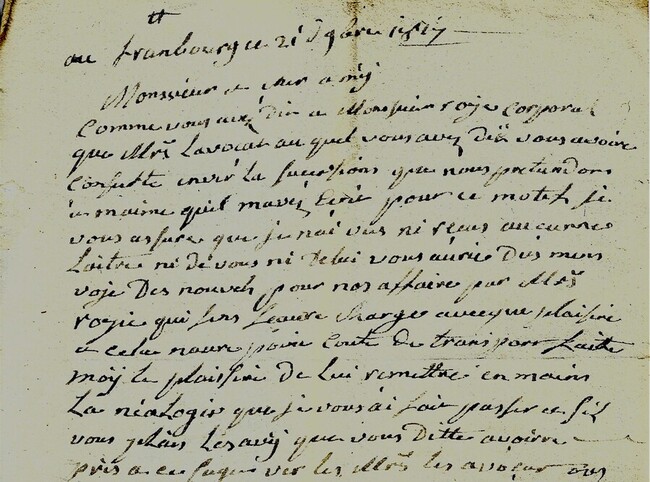 au franbourg ce 21 d 9bre 1817
Monsieur et cher amij
Comme vous avéz dit a Monsieur roije Corporal
que Mrs Lavocat au quel vous avez dit vous avoire
Consulté envir la sucessions que nous pretandons
la maime quil mavez Ecrit pour ce motif je
vous assure que je nai vus ni recus aucunnes
Laitre ni de vous ni De lui vous aurié Dus men
voje Des nouvels pour nos affaire par Mrs
royie qui sens seroit Charge avecque plaisire
a cela naure point Coute De transport faite
moij le plaisire De lui remettre en mains
La néalogie que je vous ai fait passer et sil
vous plais Lesavij que vous Ditte avoirre
pris a ce sujet ver les Mrs les avocat